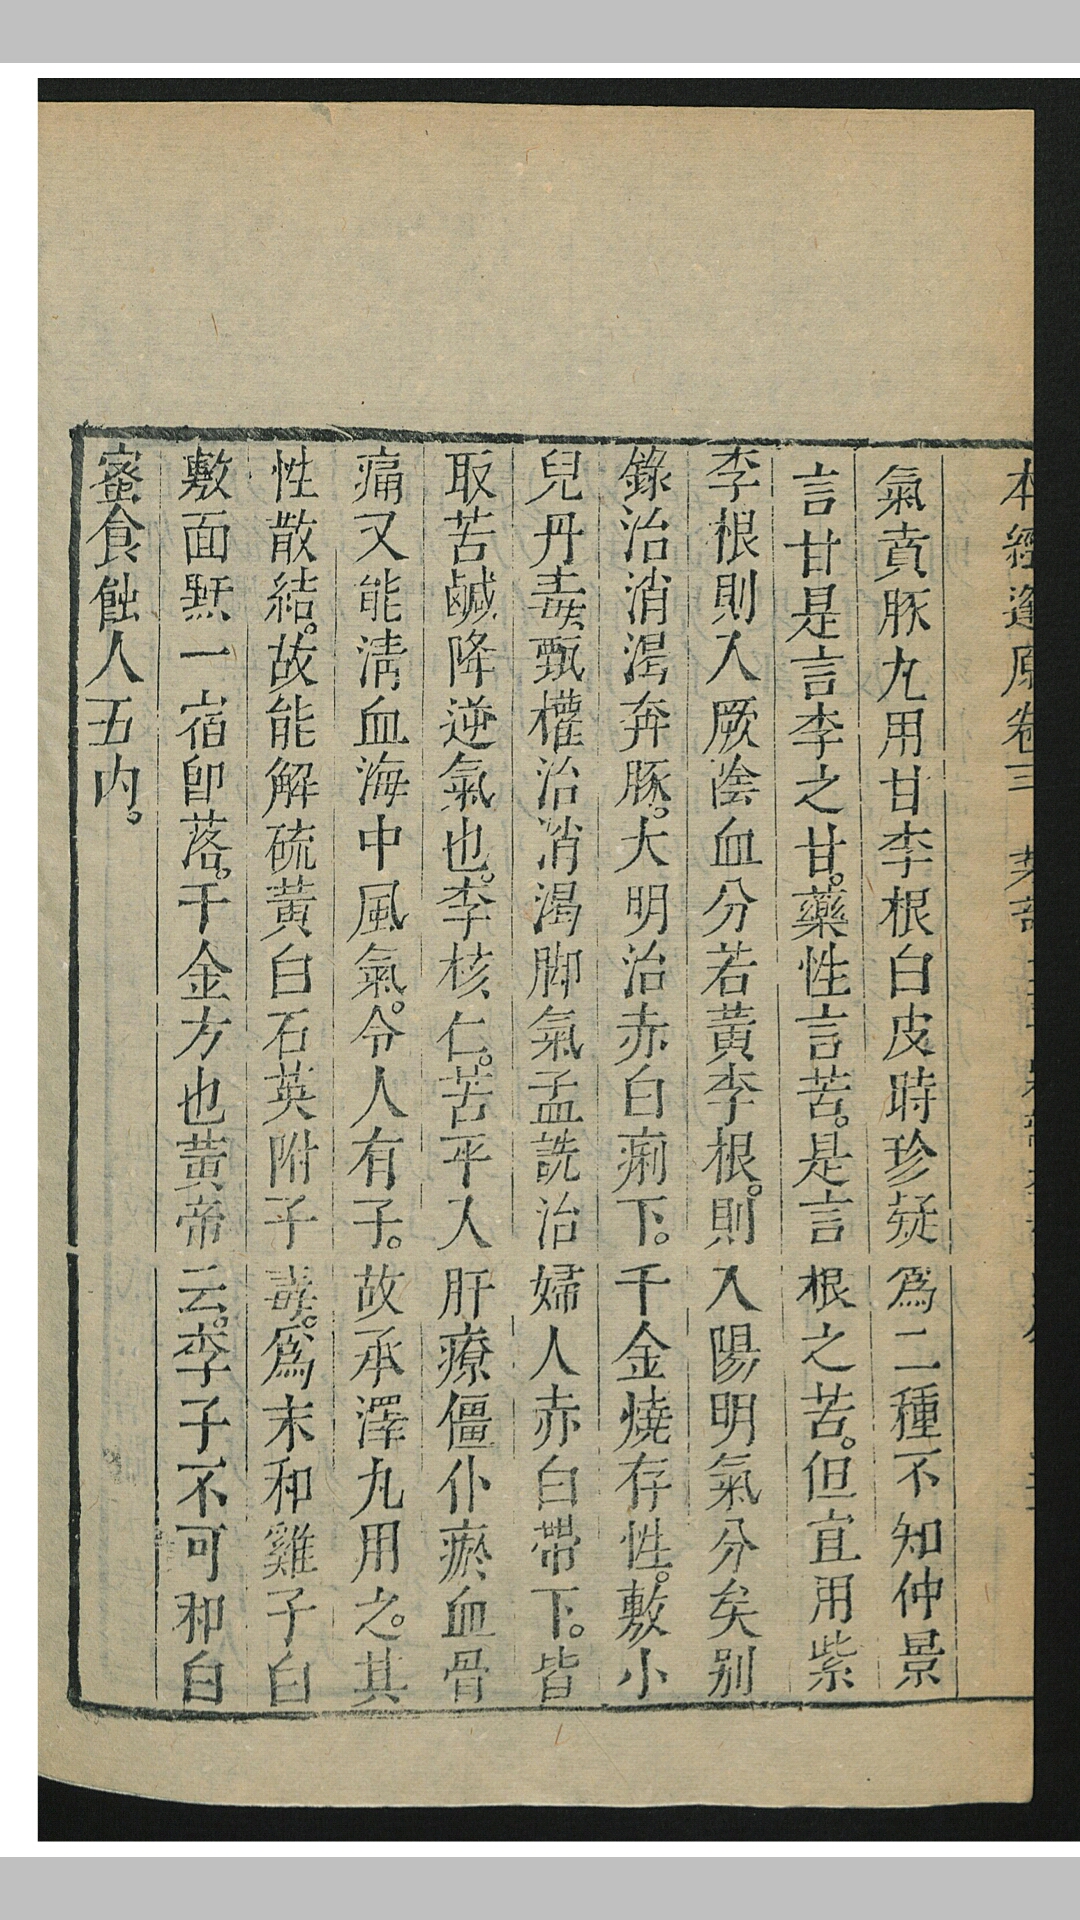 本經逢原卷三
氣賁豚丸用甘李根白皮時珍疑爲二種不知仲景
言甘是言李之甘。藥性言苦。是言根之苦。但宜用紫
李根則入厥陰血分若黃李根。則入陽明氣分矣别
錄治消渴奔豚。大明治赤白痢下。千金燒存性。敷小
兒丹毒甄權治消渴脚氣孟詵治婦人赤白帶下。皆
取苦鹹降逆氣也。李核仁。苦平入肝療僵仆瘀血骨
痛又能淸血海中風氣。令人有子。故承澤丸用之。其
性散結。故能解硫黃白石英附子毒。爲末和雞子白
敷面䵟一宿卽落。千金方也黃帝云。李子不可和白
蜜食蝕人五内。